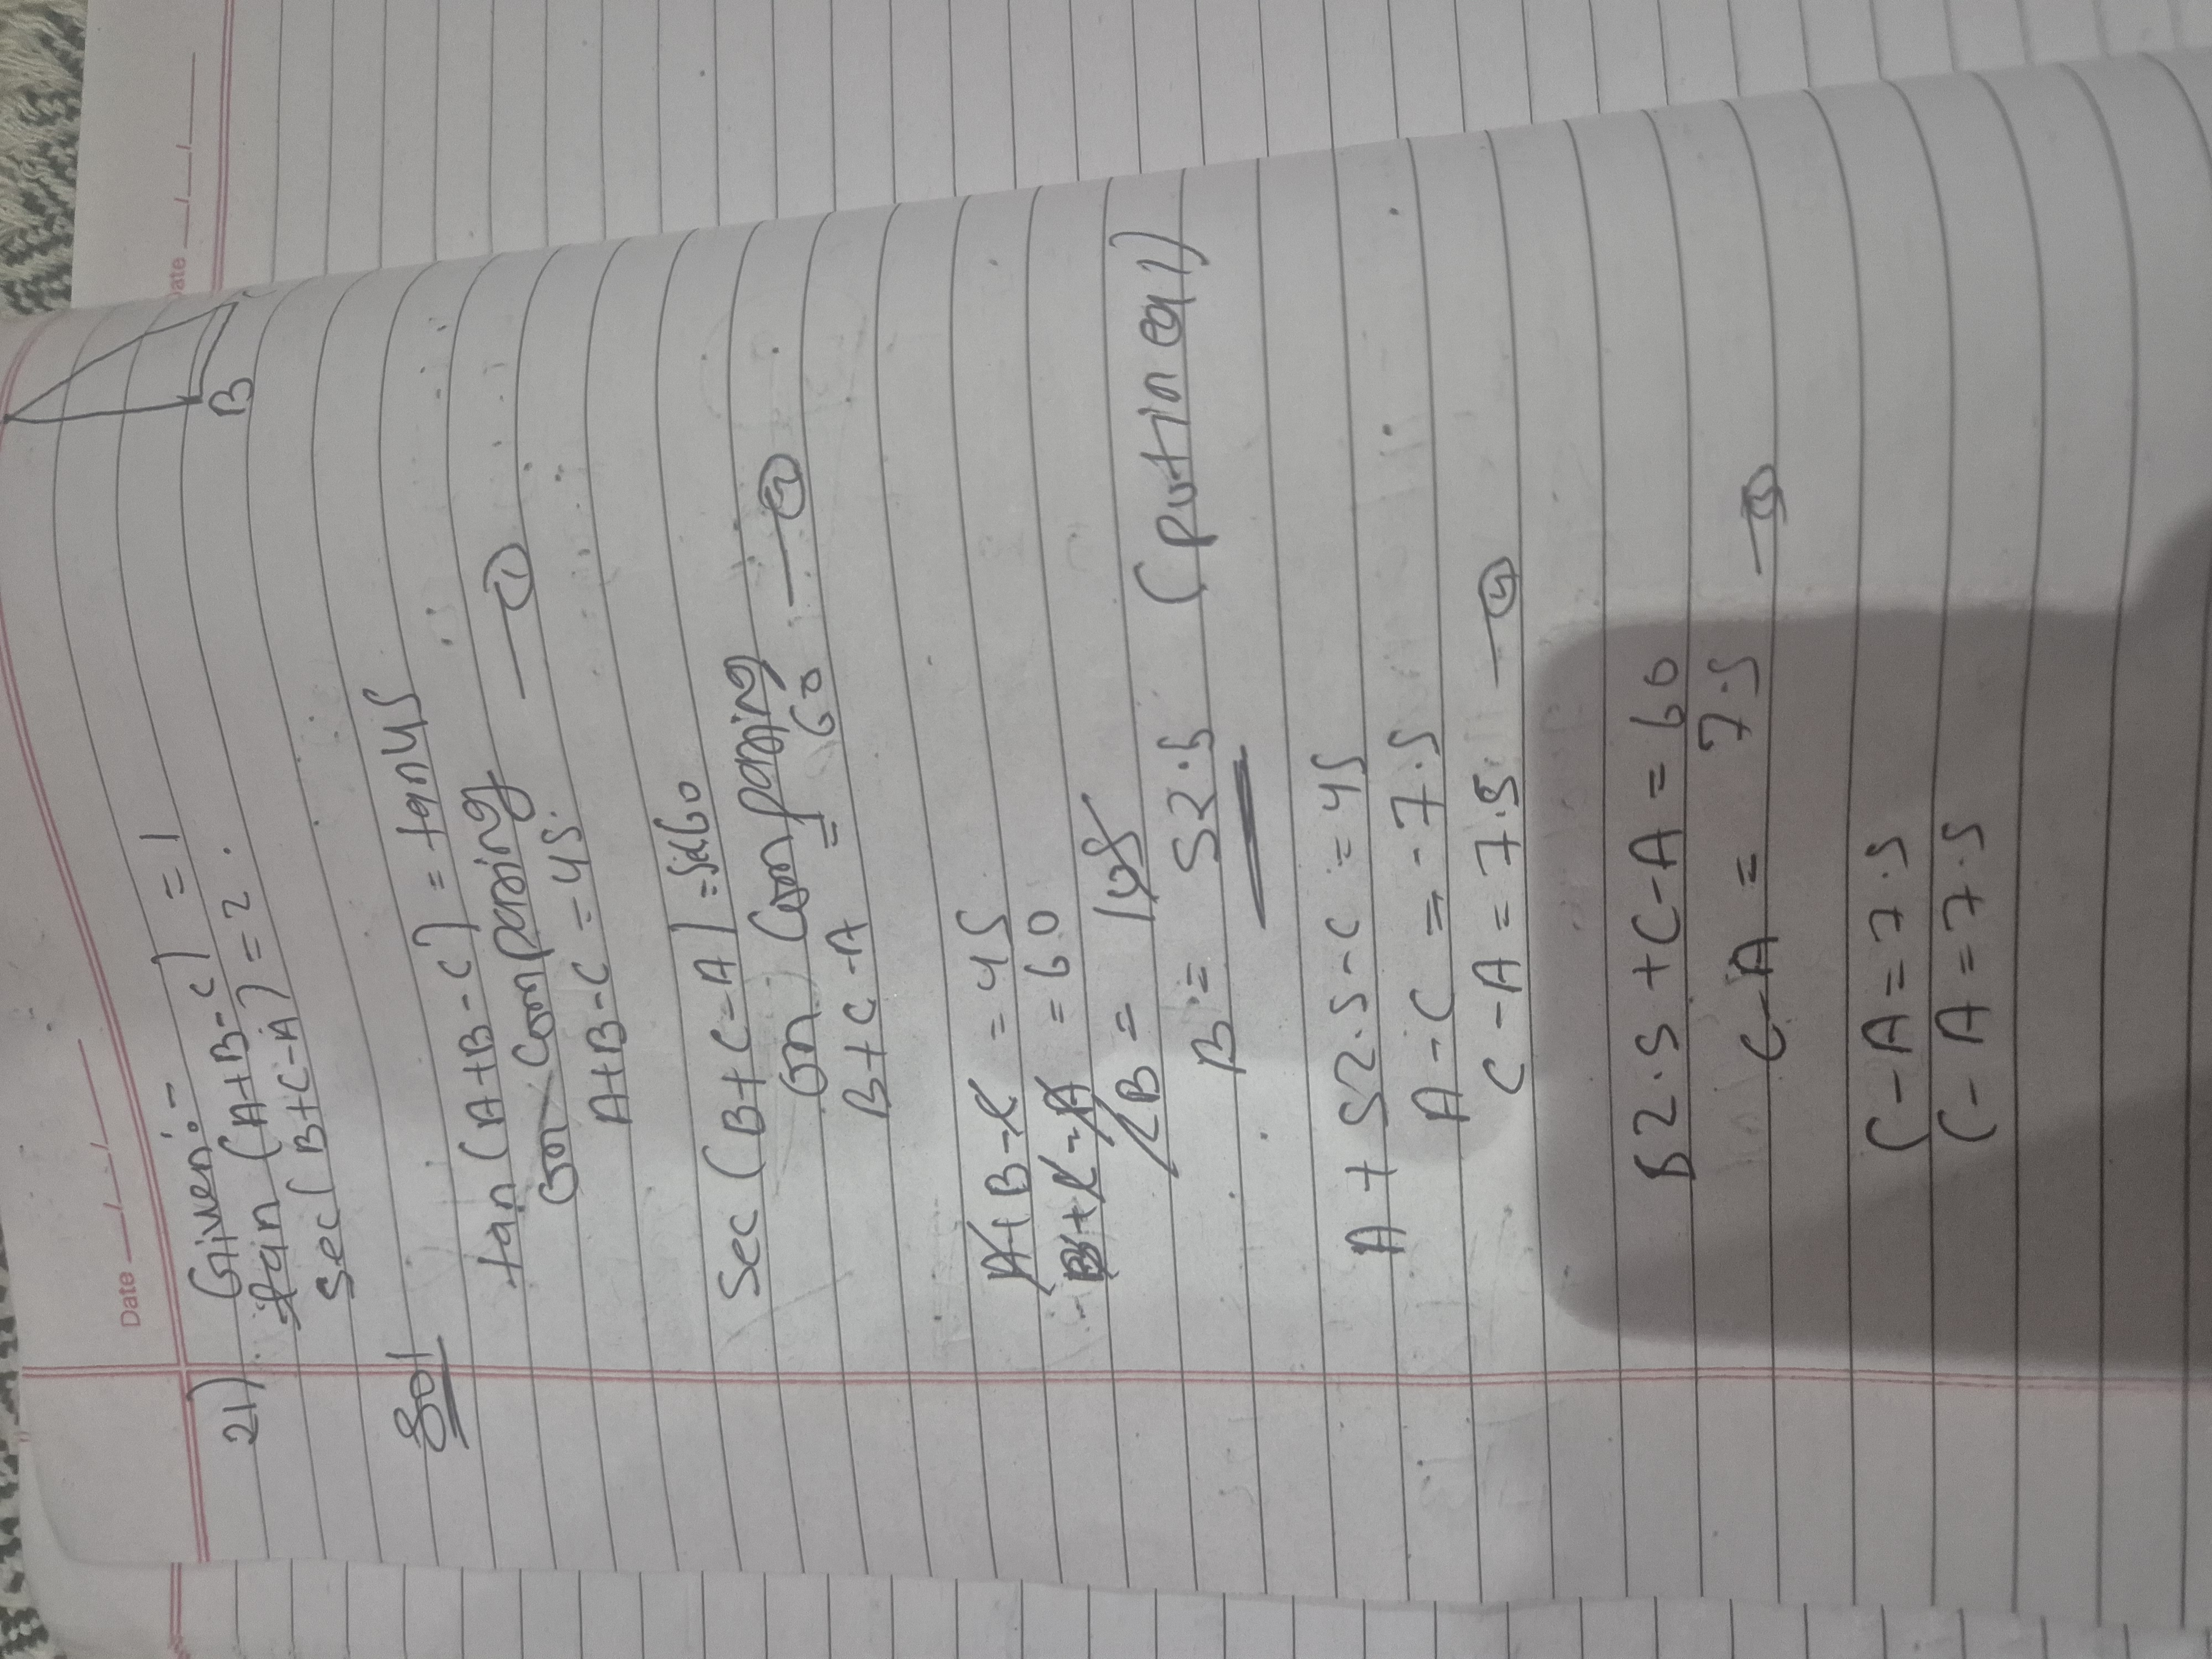 Date
21) Given:-
tan (A+B-C) = 1
sec (B+C-A) = 2.
B
Sol
tan (A+B-C) = tan45
on comparing
A+B-C = 45. —①
Sec (B+C-A) = Sec60
on comparing
B+C-A = 60 —②
A+B-C = 45
B+C-A = 60
2B = 105
B = 52.5 (put in eq 1)
A + 52.5-C = 45
A-C = -7.5
C-A = 7.5
52.5 + C-A = 60
C-A = 7.5
C-A = 7.5
C-A = 7.5
Date